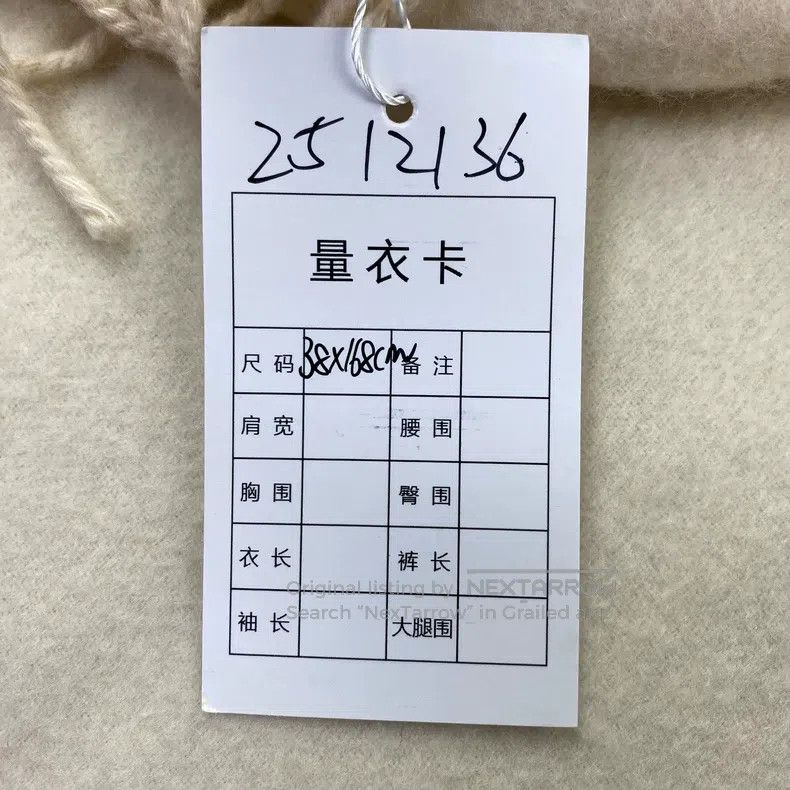 2512136
量衣卡
尺码 38X168cm 备注
肩宽 腰围
胸围 臀围
衣长 裤长
Original listing by NEXTARROW
Search "NexTarrow" in Grailed
袖长 大腿围